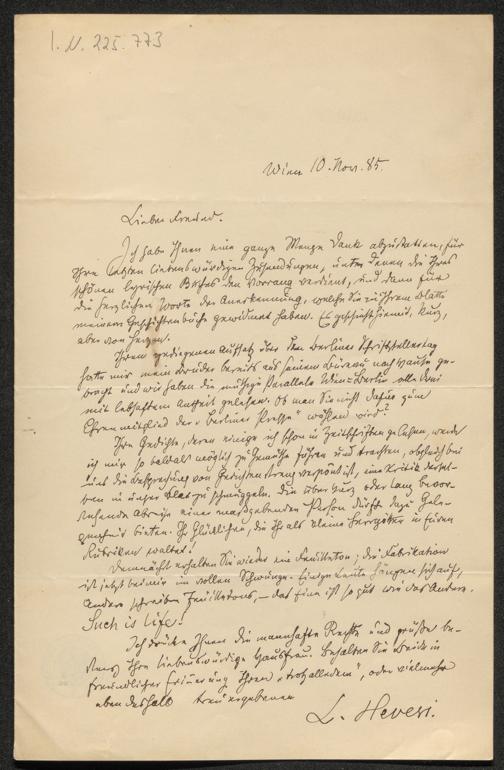 I. N. 225.773
Wien 10. Nov. 85.
Lieber Freund.
Ich habe Ihnen eine ganze Menge Dank abzustatten, für
Ihre letzten liebenswürdigen Zusendungen, unter denen die Ihres
schönen lyrischen den Vorrang verdient, und dann für
die herzlichen Worte der Anerkennung, welche Sie in Ihrem Blatte
meinem Geschichtenbuche gewidmet haben. Es geschieht hiemit, kurz,
aber von Herzen.
Ihren gediegenen Aufsatz über den Berliner Schriftstellertag
hatte mir mein Bruder bereits aus seinem Bureau nach Hause ge-
bracht und wir haben die Parallele Wien-Berlin alle drei
mit lebhaftem Antheil gelesen. Ob man Sie nicht dafür zum
Ehrenmitglied der "Berliner Presse" wählen wird?
Ihre Gedichte, deren einige ich schon in Zeitschriften gelesen, werde
ich mir so bald als möglich zu Gemüthe führen und trachten, obgleich bei
uns die Besprechung von Gedichten streng verpönt ist, eine Kritik dersel-
ben in unser Blatt zu schmuggeln. Die über kurz oder lang bevor-
stehende Abreise einer maßgebenden Person dürfte dazu Gele-
genheit bieten. Ihr Glücklichen, die Ihr als kleine Herrgötter in Euren
Rubriken waltet!
Demnächst erhalten Sie wieder ein Feuilleton; die Fabrikation
ist jetzt bei mir im vollen Schwunge. Einige Leute hängen sich auf,
Andere schreiben Feuilletons, – das Eine ist so gut wie das Andere.
Such is life!
Ich drücke Ihnen die mannhafte Rechte und grüße be-
stens Ihre liebenswürdige Hausfrau. Behalten Sie Beide in
freundlicher Erinnerung Ihren "trotzalledem", oder vielmehr
eben deshalb treuergebenen
L. Hevesi.